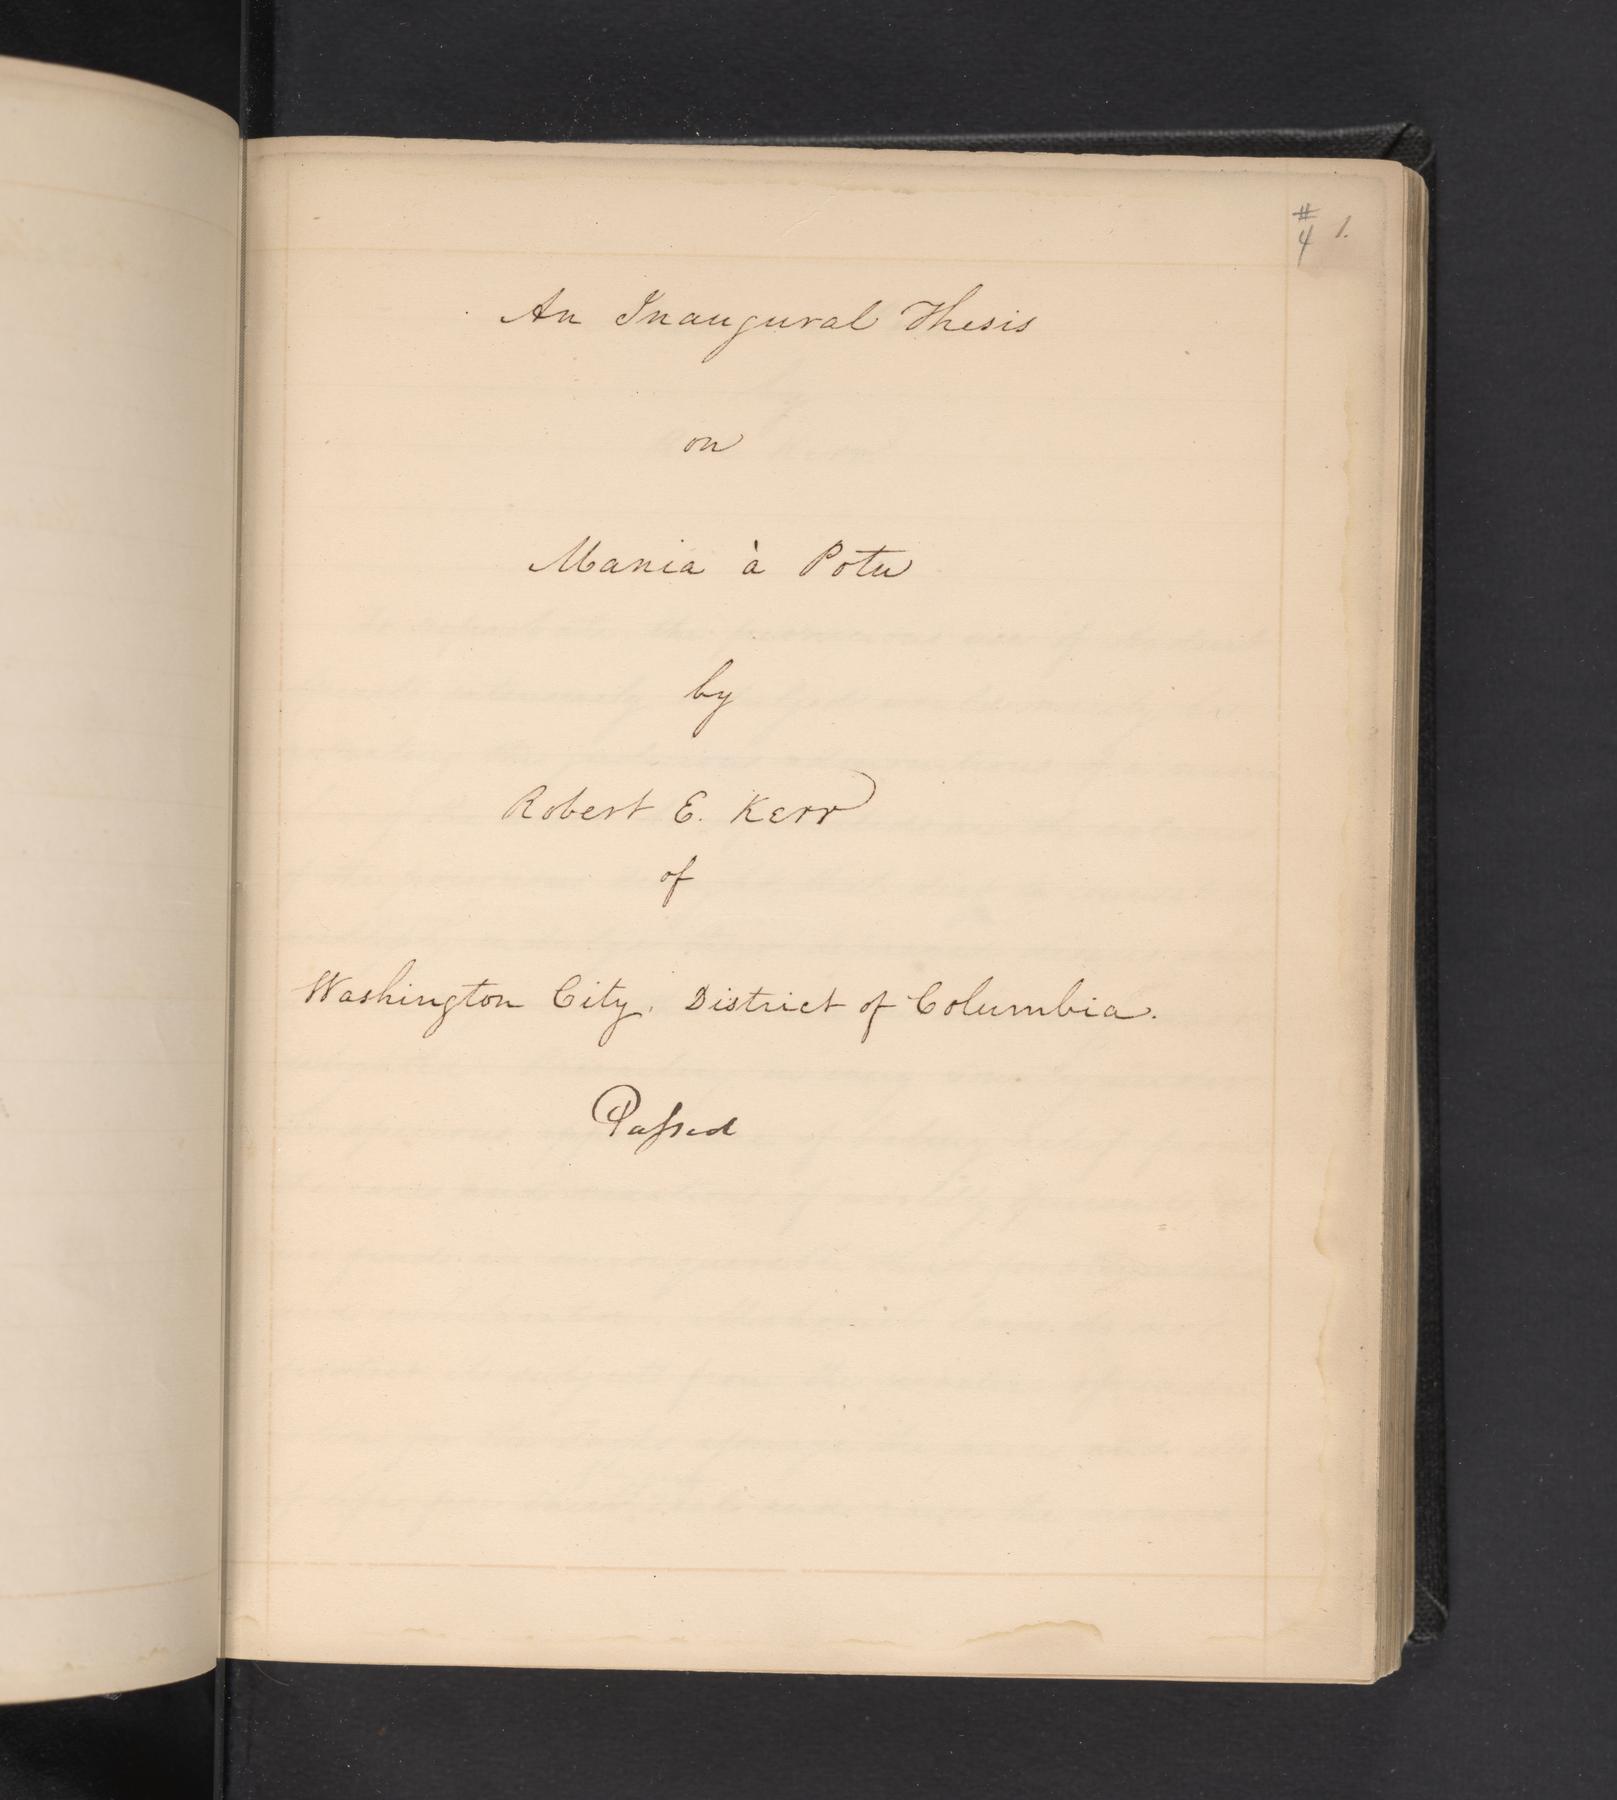 # 4 1.
An Inaugural Thesis
on
Mania à Potu
by
Robert E. Kerr
of
Washington City, District of Columbia.
Passed